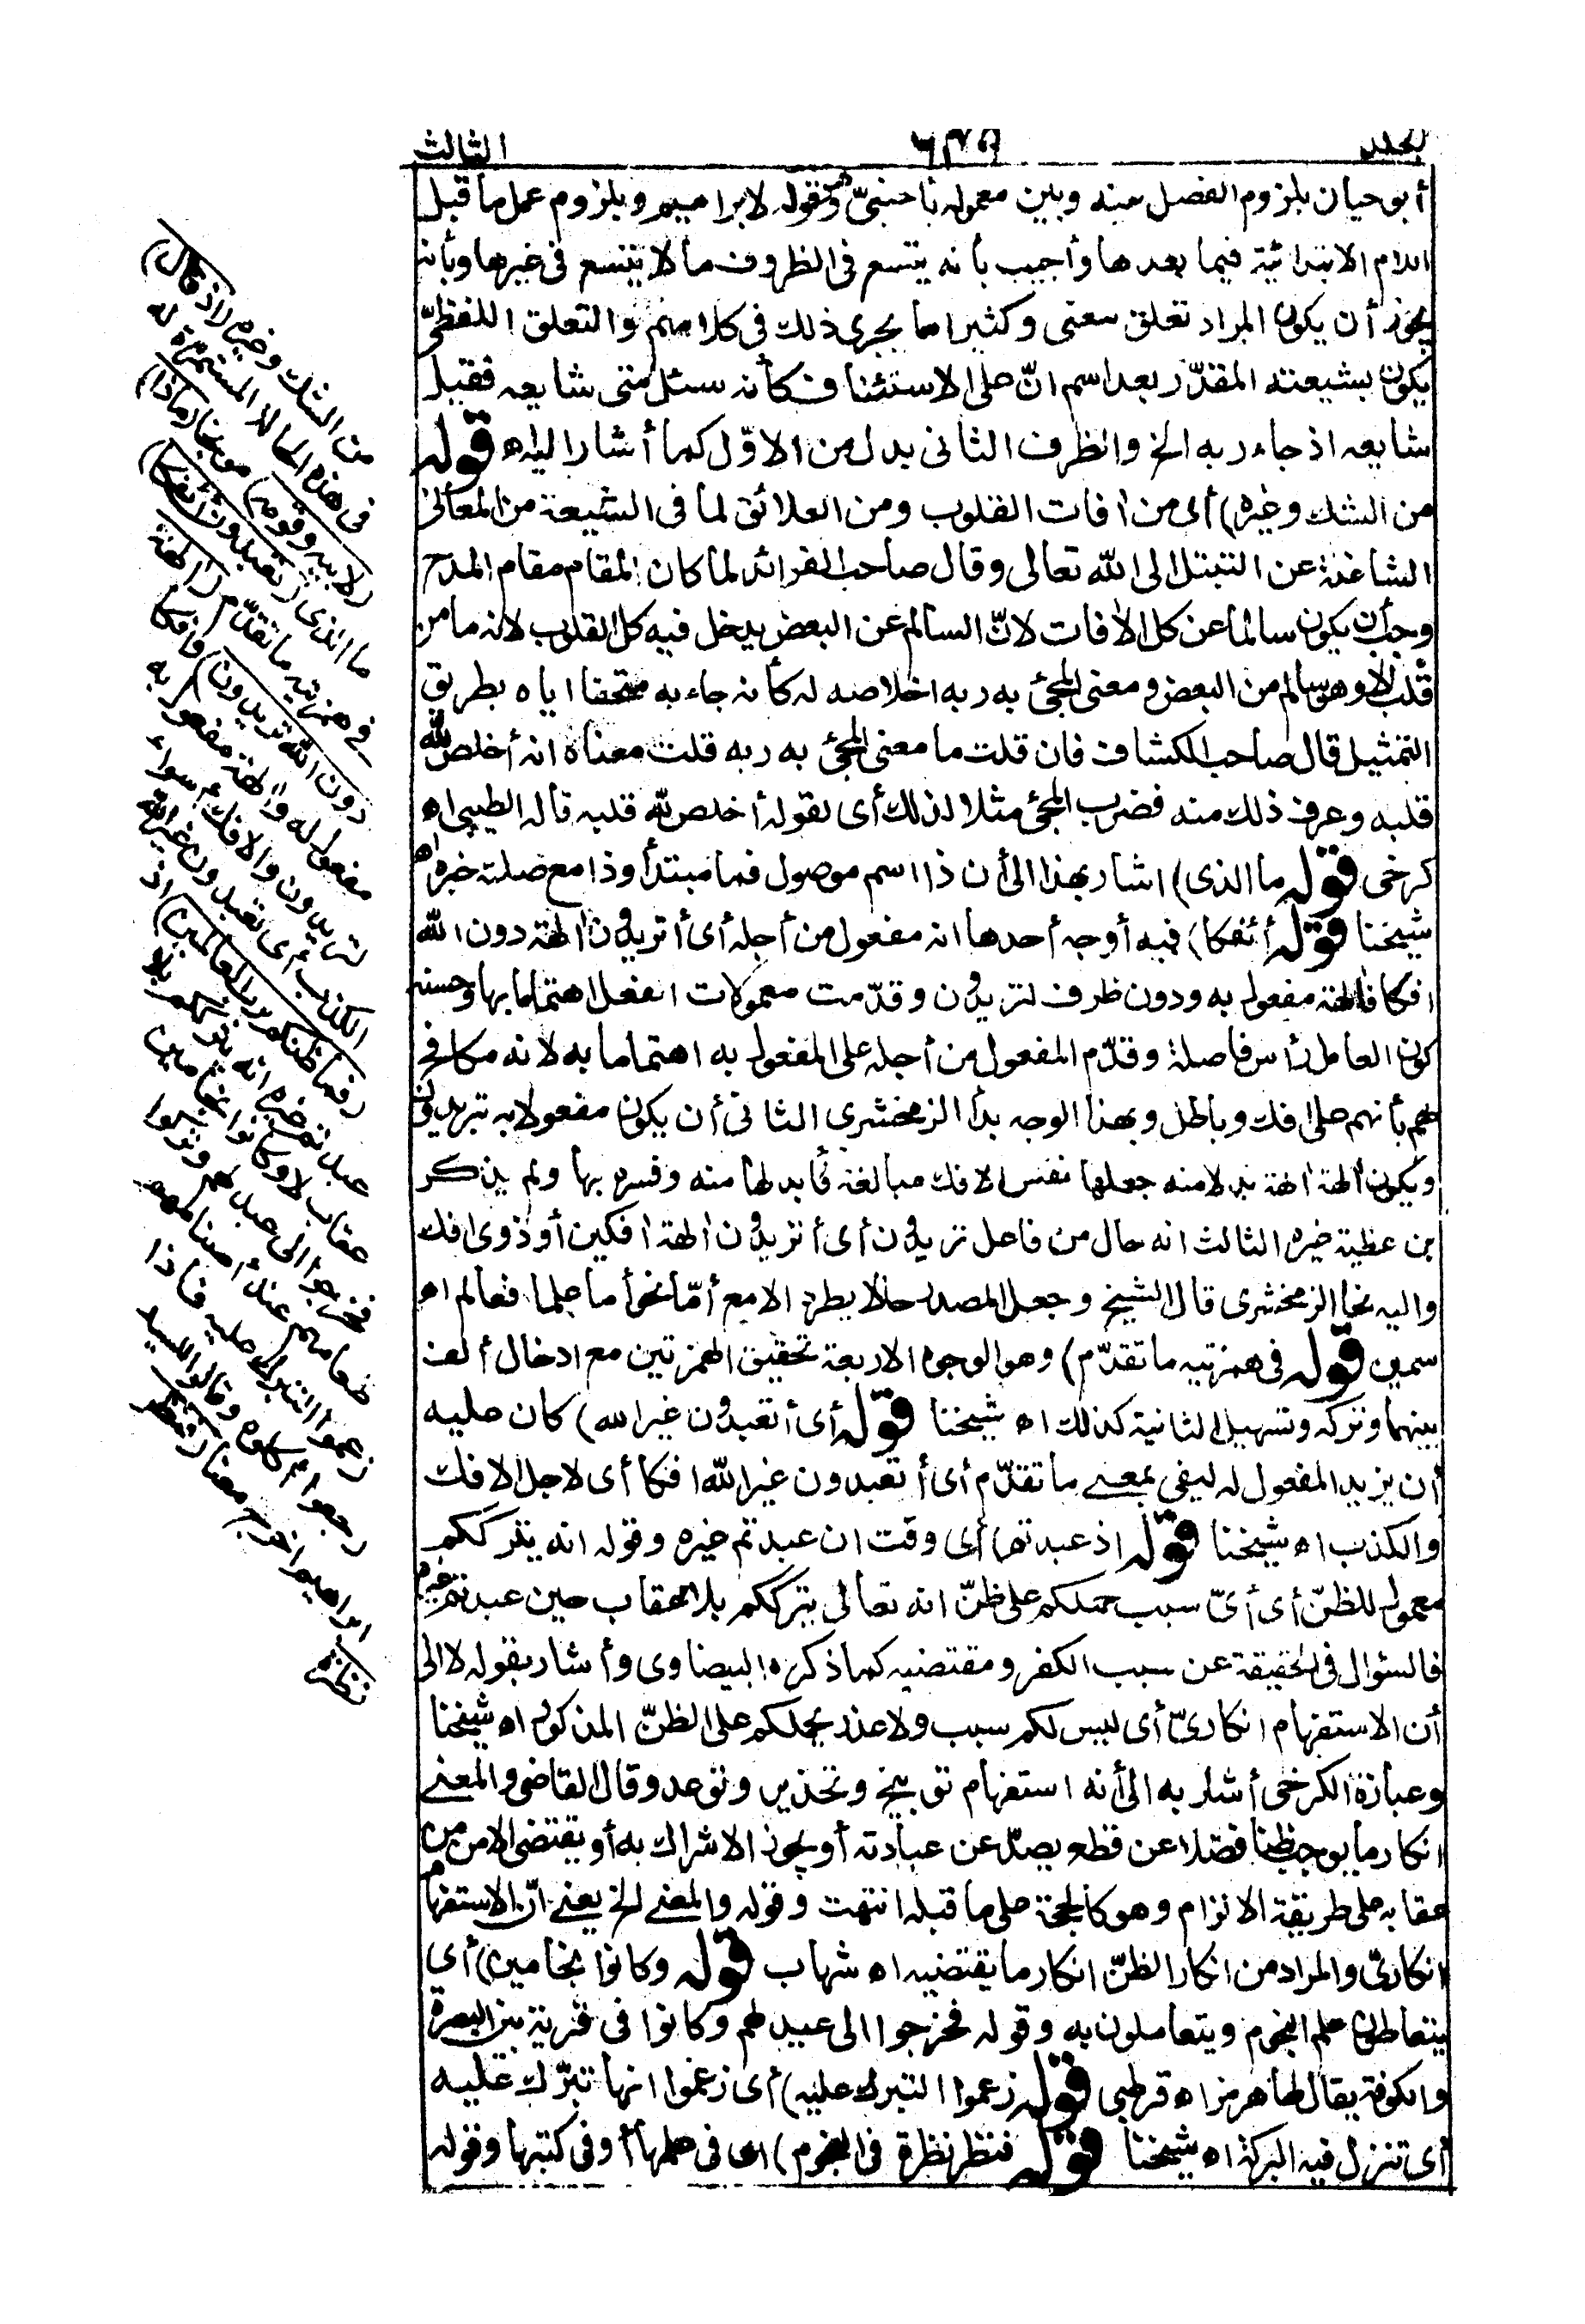 الثالث
المجلد
أبو حيان بلزوم الفصل بينه وبين معموله بأجنبىّ وهو قوله لابراهيم وبلزوم عمل ما قبل
اللام الابتدائية فيما بعدها وأجيب بأنه يتسع فى الظروف ما لا يتسع فى غيرها وبأنه
يجوز أن يكون المراد تعلق معنى وكثيرا ما يجرى ذلك فى كلامهم والتعلق اللفظىّ
يكون بشيعته المقدّر بعد اسم انّ على الاستئناف كأنه سئل متى شايعه فقيل
شايعه اذ جاء ربه الخ والظرف الثانى بدل من الاوّل كما أشار اليه اه قوله
من الشك وغيره) أى من آفات القلوب ومن العلائق لما فى الشيعة من المعانى
الشاغلة عن التبتل الى الله تعالى وقال صاحب الفرائد لما كان المقام مقام المدح
وجب أن يكون سالما عن كل الآفات لانّ السالم عن البعض يدخل فيه كل القلوب لانه ما من
قلب الا وهو سالم من البعض ومعنى المجئ به ربه اخلاصه له كأنه جاء به متحفا اياه بطريق
التمثيل قال صاحب الكشاف فان قلت ما معنى المجئ به ربه قلت معناه انه أخلص لله
قلبه وعرف ذلك منه فضرب المجئ مثلا لذلك أى لقوله أخلص لله قلبه قاله الطيبى اه
كرخى قوله ما الذى) اشار بهذا الى أن ذا اسم موصول فما مبتدأ وذا مع صلته خبره اه
شيخنا قوله أئفكا) فيه أوجه أحدها انه مفعول من أجله أى أتريدون آلهة دون الله
افكا فآلهة مفعول به ودون ظرف لتريدون وقدّمت معمولات الفعل اهتماما بها وحسنه
كون العامل رأس فاصلة وقدّم المفعول من أجله على المفعول به اهتماما به لانه مكافح
لهم بأنهم على افك وباطل وبهذا الوجه بدأ الزمخشرى الثانى أن يكون مفعولا به بتريدون
ويكون آلهة آلهة بدلا منه جعلها نفس الافك مبالغة فأبدلها منه وفسره بها ولم يذكر
ابن عطية غيره الثالث انه حال من فاعل تريدون أى أتريدون آلهة آفكين أو ذوى افك
واليه نحا الزمخشرى قال الشيخ وجعل المصدر حالا لا يطرد الا مع أمّا نحو أما علما فعالم اه
سمين قوله فى همزتيه ما تقدّم) وهو الوجوه الاربعة تحقيق الهمزتين مع ادخال ألف
بينهما وتركه وتسهيل الثانية كذلك اه شيخنا قوله أى أتعبدون غير الله) كان عليه
أن يزيد المفعول له ليفى بمعنى ما تقدّم أى أتعبدون غير الله افكا أى لاجل الافك
والكذب اه شيخنا قوله اذ عبدتم) أى وقت ان عبدتم غيره وقوله انه يترككم
معمول للظنّ أى أىّ سبب حملكم على ظنّ انه تعالى يترككم بلا عقاب حين عبدتم غيره
فالسؤال فى الحقيقة عن سبب الكفر ومقتضيه كما ذكره البيضاوى وأشار بقوله لا الى
أن الاستفهام انكارىّ أى ليس لكم سبب ولا عذر يحملكم على الظنّ المذكور اه شيخنا
وعبارة الكرخى أشار به الى أنه استفهام توبيخ وتحذير وتوعد وقال القاضى والمعنى
انكار ما يوجب ظنا فضلا عن قطع يصدّ عن عبادته أو يجوز الاشراك به أو يقتضى الامن من
عقابه على طريقة الالزام وهو كالحجة على ما قبله انتهت وقوله والمعنى الخ يعنى انّ الاستفهام
انكارىّ والمراد من انكار الظنّ انكار ما يقتضيه اه شهاب قوله وكانوا نجامين) أى
يتعاطون علم النجوم ويتعاملون به وقوله فخرجوا الى عيد لهم وكانوا فى قرية بين البصرة
والكوفة يقال لها هرمز اه قرطبى قوله زعموا التبرك عليه) أى زعموا انها تتبرّك عليه
أى تنزل فيه البركة اه شيخنا قوله فنظر نظرة فى النجوم) اى فى علمها أو فى كتبها وقوله
من الشك وغيره (اذ قال)
فى هذه الحالة المستمرة له
(لابيه وقومه) موبخا (ماذا)
ما الذى (تعبدون أئفكا)
فى همزتيه ما تقدّم (آلهة
دون الله تريدون) وافكا
مفعول له وآلهة مفعول به
لتريدون والافك أسوأ
الكذب أى تعبدون غير الله
(فما ظنكم برب العالمين) اذ
عبدتم غيره انه يترككم بلا
عقاب لا وكانوا نجامين
فخرجوا الى عيد لهم وتركوا
طعامهم عند أصنامهم
زعموا التبرك عليه فاذا
رجعوا أكلوه وقالوا للسيد
ابراهيم اخرج معنا (فنظر
نظرة